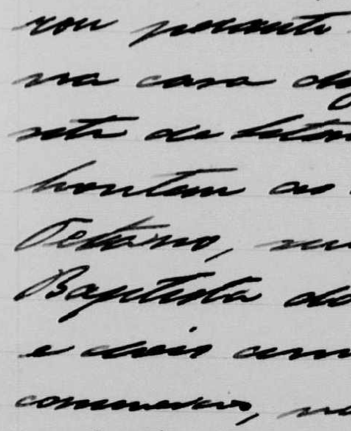 rou perante
na casa d
sete de
hontem ao
Octavio,
Baptista do
e dois ann
commercio, na